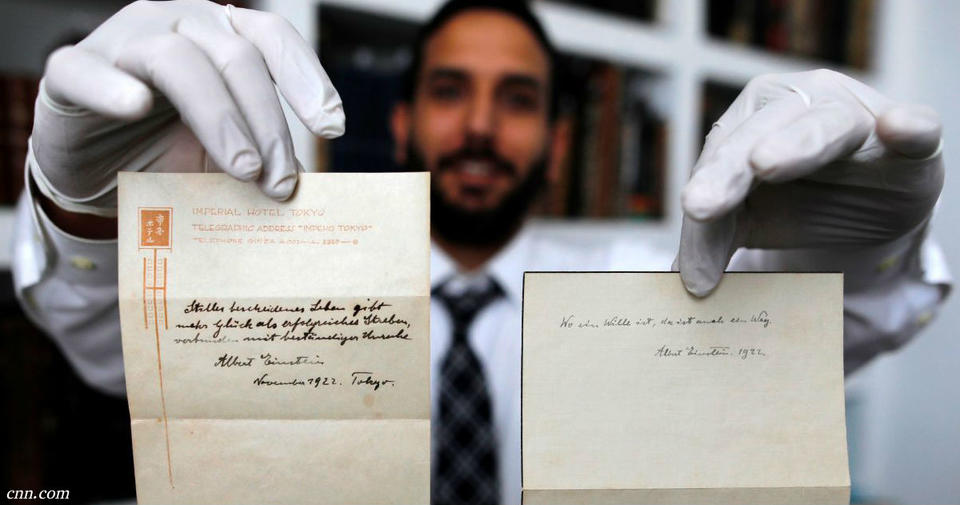 ホテル
IMPERIAL HOTEL TOKYO
TELEGRAPHIC ADDRESS "IMPEHO TOKYO"
TELEPHONE GINZA
Stilles bescheidenes Leben gibt
mehr Glück als erfolgreiches Streben,
verbunden mit beständiger Unruhe
Albert Einstein
November 1922. Tokyo.
Wo ein Wille ist, da ist auch ein Weg.
Albert Einstein. 1922.
cnn.com